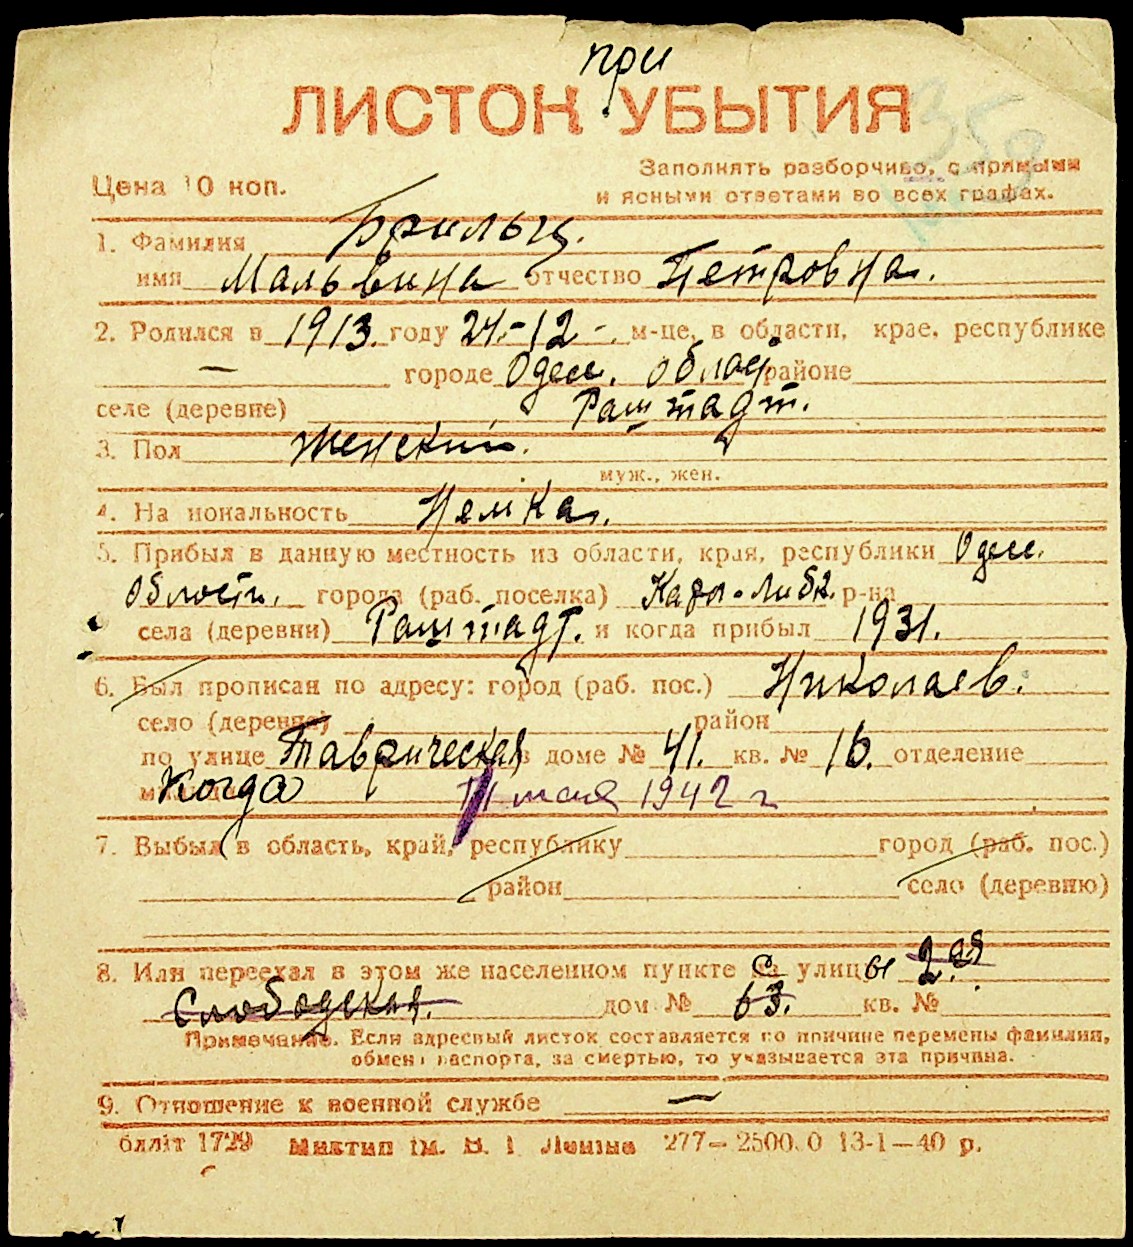 при
ЛИСТОК УБЫТИЯ
359
Цена 10 коп.
Заполнять разборчиво, с прямыми
и ясными ответами во всех графах.
1. Фамилия Брильц.
имя Мальвина отчество Петровна.
2. Родился в 1913. году 24.-12-. м-це, в области, крае, республике
— городе Одесс. облас. районе
селе (деревне) Раштадт.
3. Пол Женский.
муж., жен.
4. На иональность Немка.
5. Прибыл в данную местность из области, края, республики Одесс.
области. города (раб. поселка) Карл-Либк. р-на
села (деревни) Раштадт. и когда прибыл 1931.
6. Был прописан по адресу: город (раб. пос.) Николаев.
село (деревне) район
по улице Таврическая в доме № 41. кв. № 16. отделение
Когда 11 мая 1942 г
7. Выбыл в область, край, республику город (раб. пос.)
район село (деревню)
8. Или переехал в этом же населенном пункте с улицы 2ая
Слободская. дом № 63. кв. №
Примечание. Если адресный листок составляется по причине перемены фамилии,
обмена паспорта, за смертью, то указывается эта причина.
9. Отношение к военной службе —
блліт 1729 Миктип ім. В. І Леніна 277—2500.0 13-1—40 р.